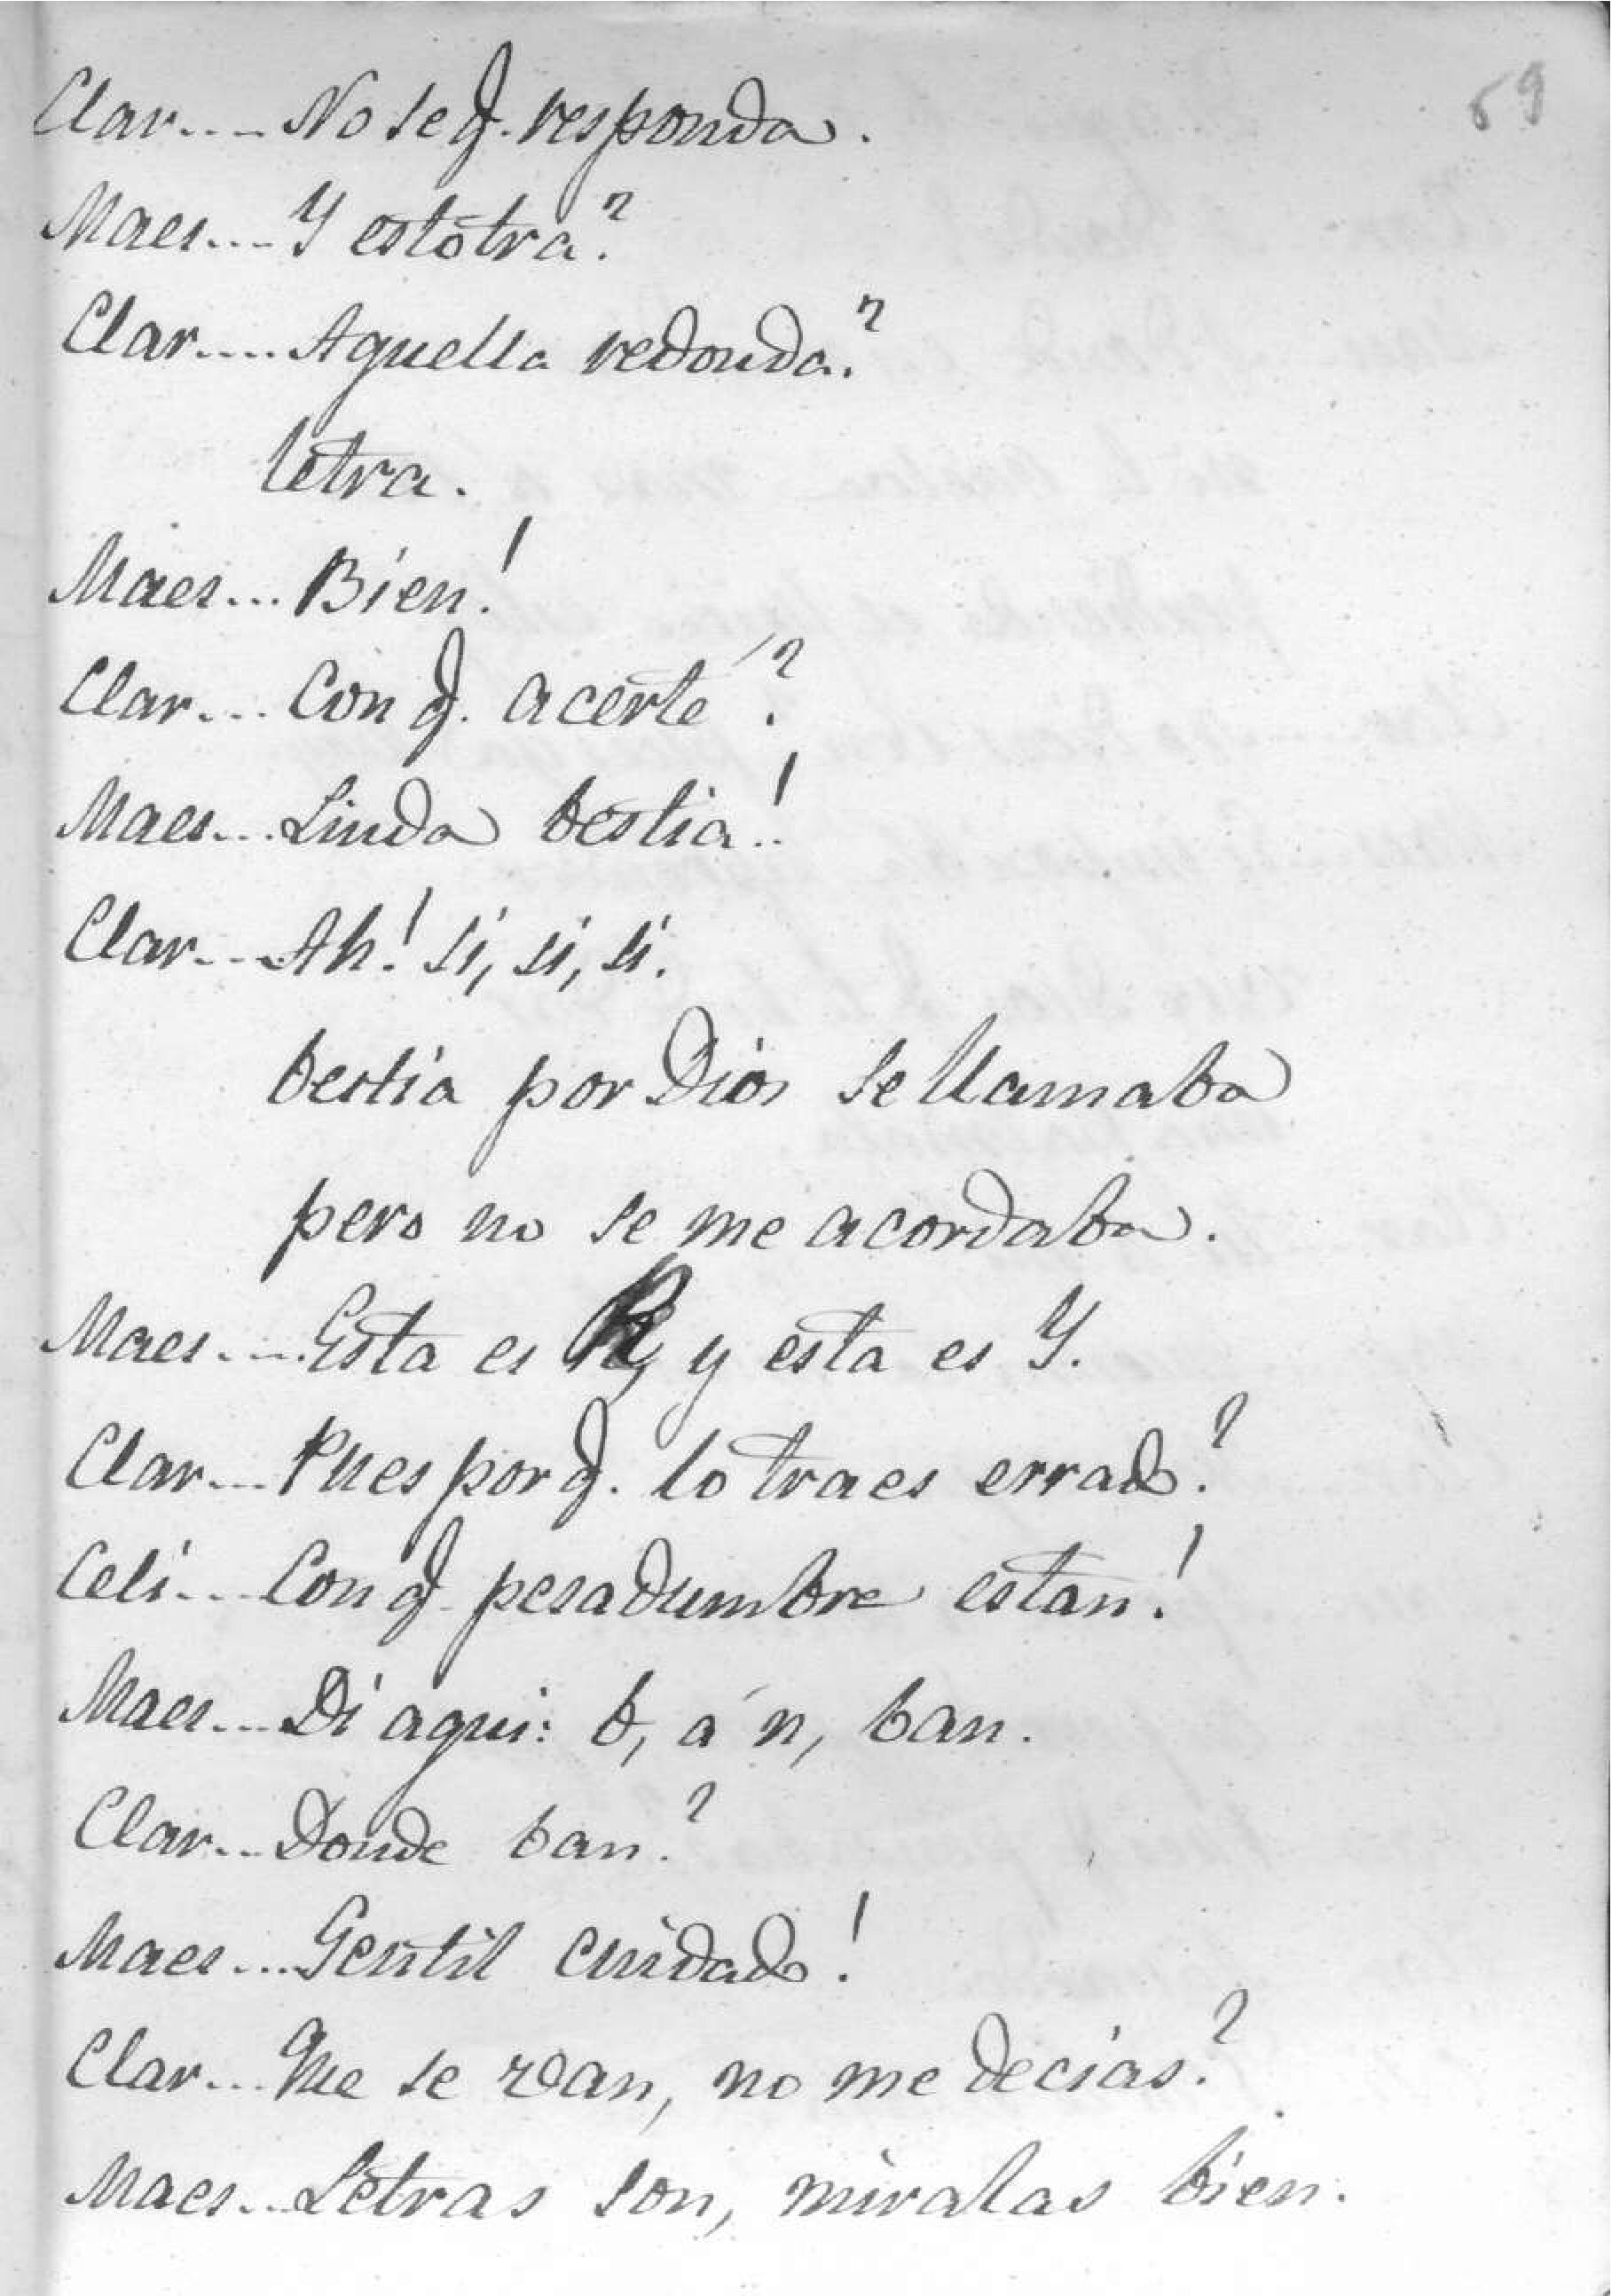 69
Clar.... No se q. responda.
Maes.... Y estotra?
Clar..... Aquella redonda?
letra.
Maes... Bien!
Clar... Con q. acerté?
Maes... Linda bestia!
Clar... Ah! sí, sí, sí.
bestia por Dios se llamaba
pero no se me acordaba.
Maes.... Esta es R, y esta es Y.
Clar... Pues por q. lo traes errado?
Celi... Con q. pesadumbre estan!
Maes... Di aqui: b, á n, ban.
Clar... Donde ban?
Maes... Gentil cuidado!
Clar... Que se van, no me decias?
Maes... Letras son, miralas bien.